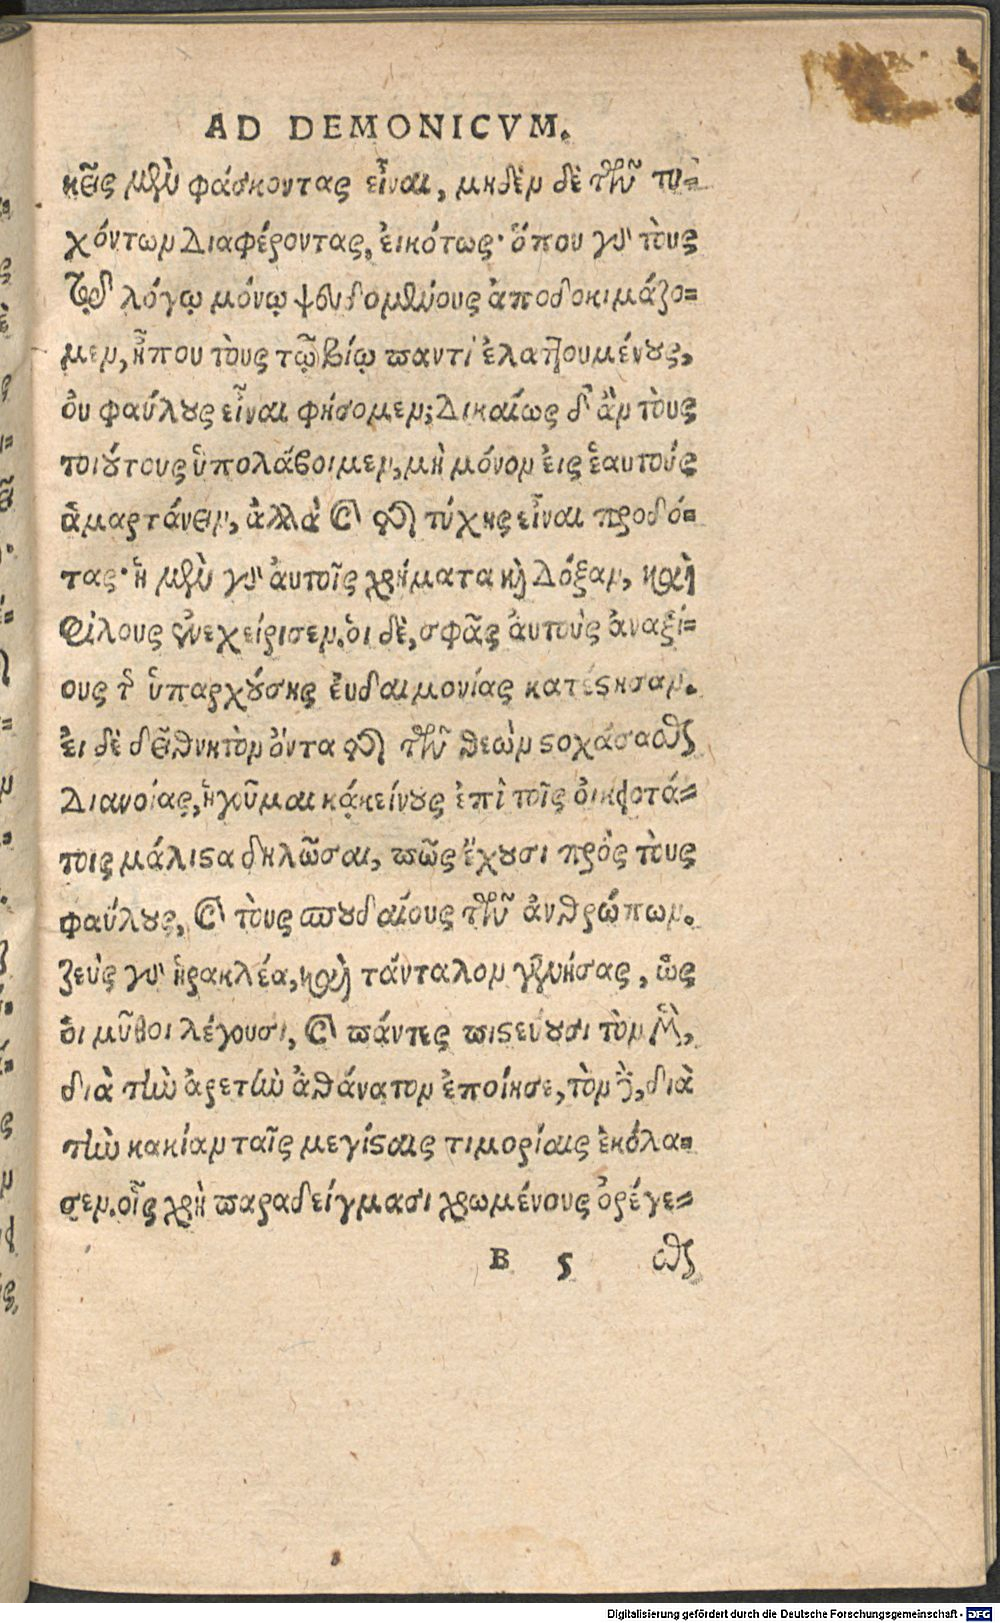 AD DEMONICVM.
κότας μὲν φάσκοντας εἶναι, μηδὲν δὲ τῶν τυ-
χόντων διαφέροντας, εἰκότως· ὅπου γὰρ τοὺς
τῷ λόγῳ μόνῳ ψευδομένους ἀποδοκιμάζο-
μεν, ἦπου τοὺς τῷ βίῳ παντὶ ἐλαττουμένους,
ὀυ φαύλους εἶναι φήσομεν; Δικαίως δ' ἂν τοὺς
τοιούτους ὑπολάβοιμεν, μὴ μόνον ἐις ἑαυτοὺς
ἁμαρτάνειν, ἀλλὰ καὶ τῆς τύχης εἶναι προδό-
τας· ἡ μὲν γὰρ ἀυτοῖς χρήματα καὶ δόξαν, καὶ
φίλους ἐνεχείρισεν. ὁι δὲ, σφᾶς ἀυτοὺς ἀναξί-
ους τῆς ὑπαρχούσης ἐυδαιμονίας κατέστησαν.
ἐι δὲ δεῖ θνητὸν ὄντα τῆς τῶν θεῶν στοχάσασθαι
διανοίας, ἡγοῦμαι κᾀκείνους ἐπὶ τοῖς ὀικειοτά-
τοις μάλιστα δηλῶσαι, πῶς ἔχουσι πρὸς τοὺς
φαύλους, καὶ τοὺς σπουδαίους τῶν ἀνθρώπων.
ζεὺς γὰρ ἡρακλέα, καὶ τάνταλον γεννήσας, ὡς
ὁι μῦθοι λέγουσι, καὶ πάντες πιστεύουσι τὸν μὲν,
διὰ τὴν ἀρετὴν ἀθάνατον ἐποίησε, τὸν δὲ, διὰ
τὴν κακίαν ταῖς μεγίσταις τιμορίαις ἐκόλα-
σεν. οἷς χρὴ παραδείγμασι χρωμένους ὀρέγε-
B 5 σθαι
Digitalisierung gefördert durch die Deutsche Forschungsgemeinschaft - DFG